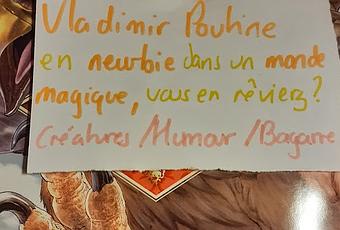 Vladimir Poutine
en newbie dans un monde
magique, vous en rêviez?
Créatures / Humour / Bagarre